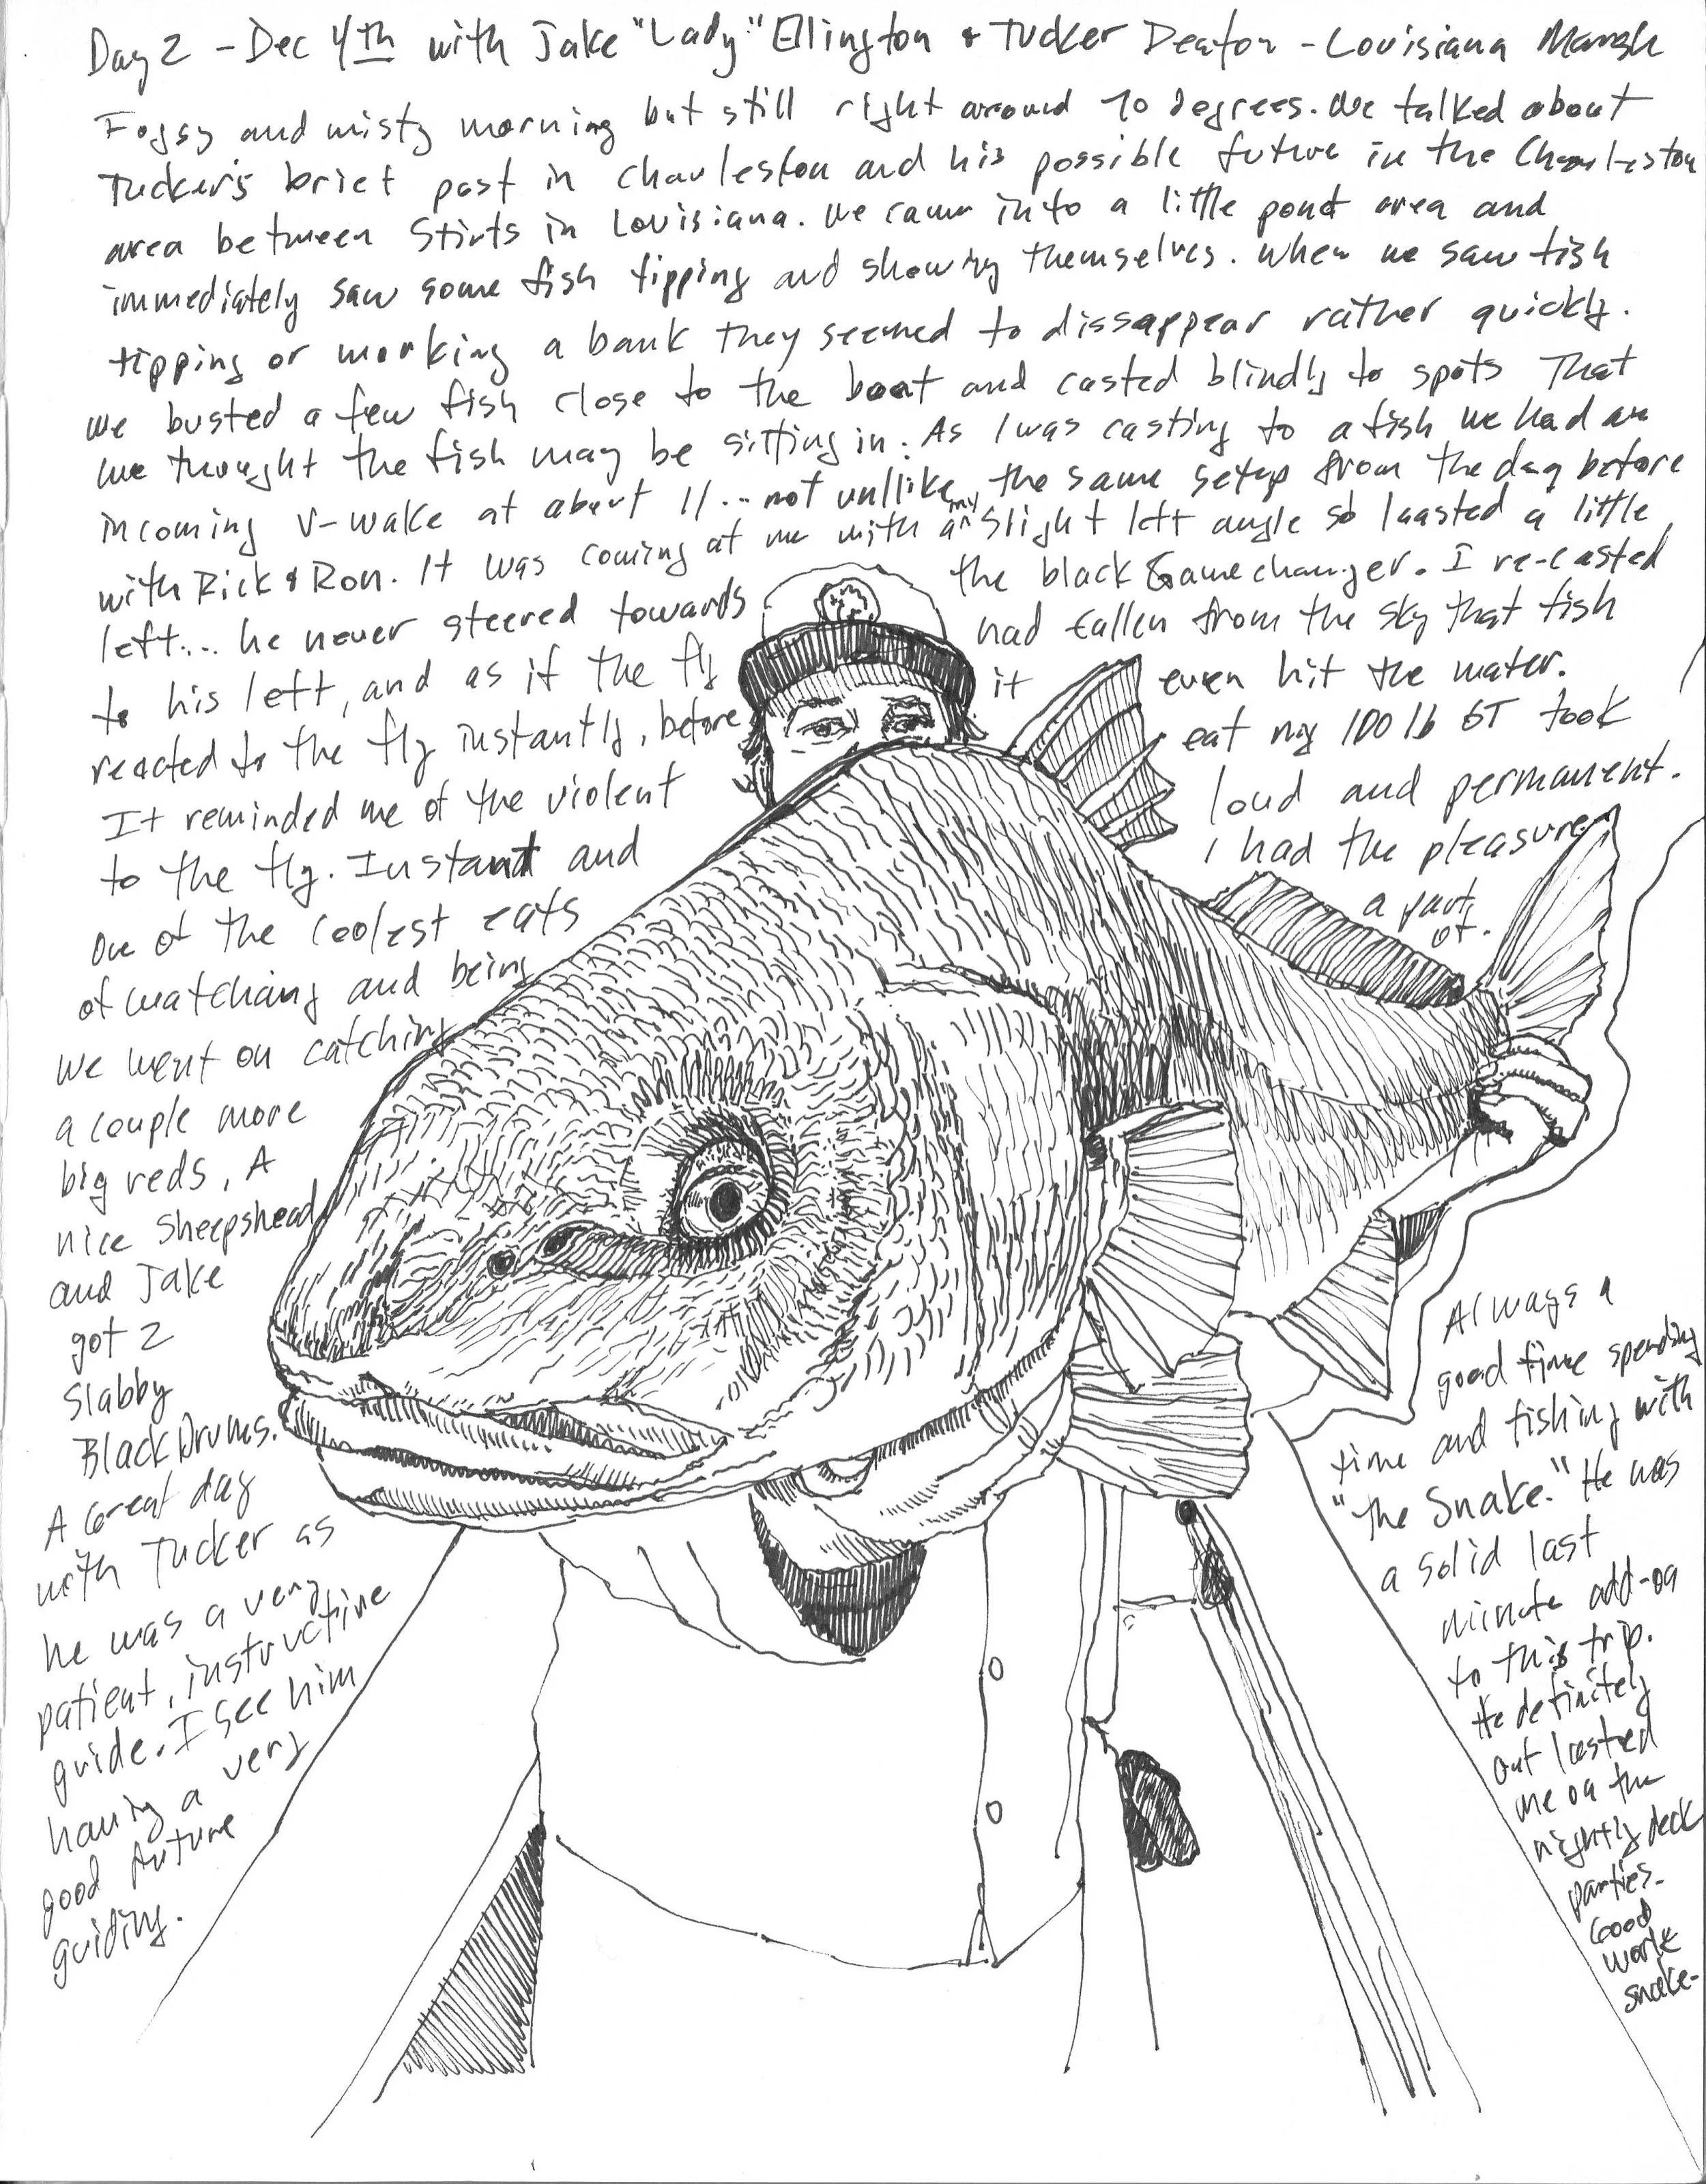 Day 2 - Dec 4th with Jake "Lady" Ellington & Tucker Deaton - Louisiana Marsh
Foggy and misty morning but still right around 70 degrees. We talked about
Tucker's brief past in Charleston and his possible future in the Charleston
area between Stints in Louisiana. We came into a little pond area and
immediately saw some fish tipping and showing themselves. When we saw fish
tipping or working a bank they seemed to dissappear rather quickly.
We busted a few fish close to the boat and casted blindly to spots That
we thought the fish may be sitting in. As I was casting to a fish we had an
incoming V-wake at about 11... not unlike the same setup from the day before
with Rick & Ron. It was coming at me with my slight left angle so I casted a little
left... he never steered towards the black Gamechanger. I re-casted
to his left, and as if the fly had fallen from the sky that fish
reacted to the fly instantly, before it even hit the water.
It reminded me of the violent eat my 100 lb GT took
to the fly. Instant and loud and permanent.
One of the coolest eats I had the pleasure
of watchaing and being a part of.
We went on catching
a couple more
big reds, A
nice Sheepshead
and Jake
got 2
Slabby
Black Drums.
A Great day
with Tucker as
he was a very
patient, instructive
guide. I see him
having a very
good future
guiding.
Always a
good time spending
time and fishing with
"the Snake." He was
a solid last
minute add-on
to this trip.
He definitely
out lasted
me on the
nightly deck
parties.
Good
work
snake.